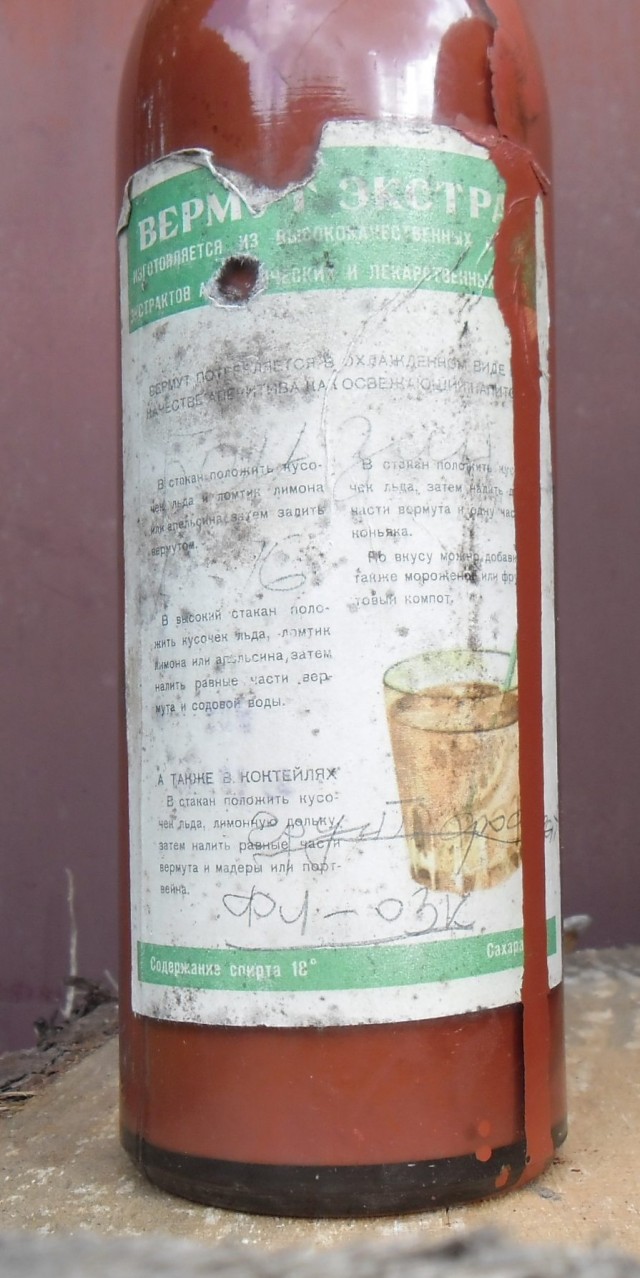 ВЕРМУТ ЭКСТРА
ИЗГОТОВЛЯЕТСЯ ИЗ ВЫСОКОКАЧЕСТВЕННЫХ
ЭКСТРАКТОВ А ЧЕСКИХ И ЛЕКАРСТВЕННЫ
ВЕРМУТ ПОТРЕБЛЯЕТСЯ В ОХЛАЖДЕННОМ ВИДЕ
КАЧЕСТВЕ АПЕРИТИВА КАК ОСВЕЖАЮЩИЙ НАПИТО
В стакан положить кусо-
чек льда и ломтик лимона
или апельсина, затем залить
вермутом.
В высокий стакан поло-
жить кусочек льда, ломтик
лимона или апельсина, затем
налить равные части вер-
мута и содовой воды.
А ТАКЖЕ В КОКТЕЙЛЯХ
В стакан положить кусо-
чек льда, лимонную дольку,
затем налить равные части
вермута и мадеры или порт-
вейна.
В стакан положить кус
чек льда, затем налить д
части вермута и одну час
коньяка.
По вкусу можно добави
также мороженое или фру
товый компот.
16
ФЛ-03К
Содержание спирта 18° Сахара